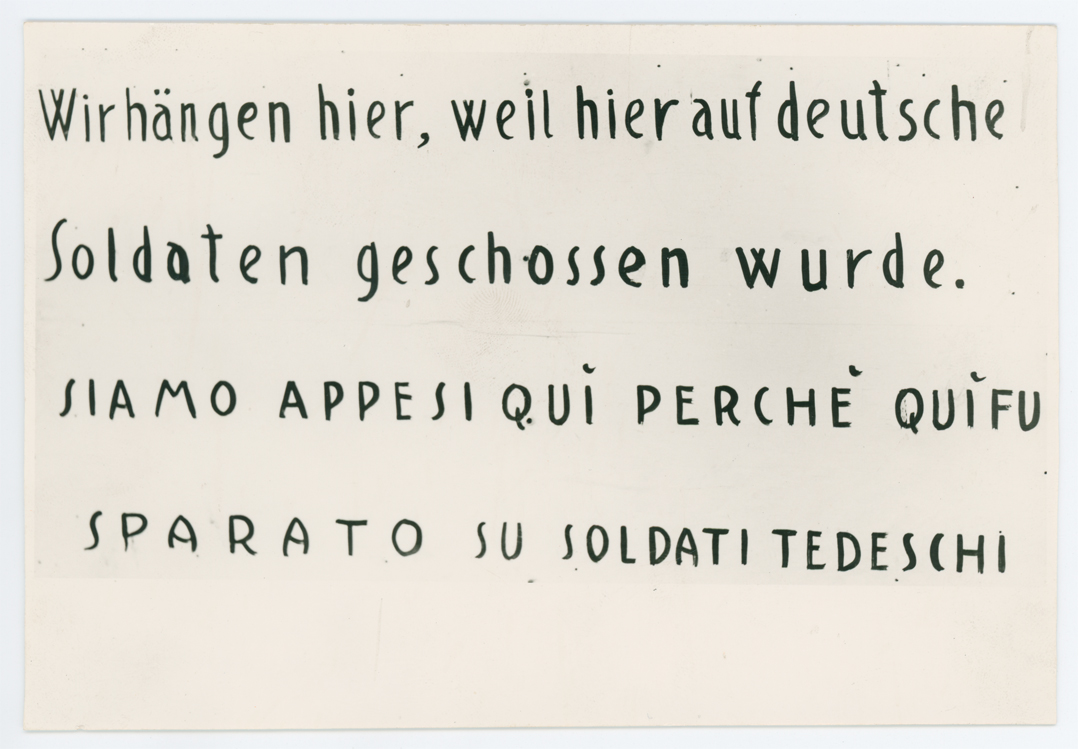 Wir hängen hier, weil hier auf deutsche
Soldaten geschossen wurde.
SIAMO APPESI QUÌ PERCHÈ QUÌ FU
SPARATO SU SOLDATI TEDESCHI